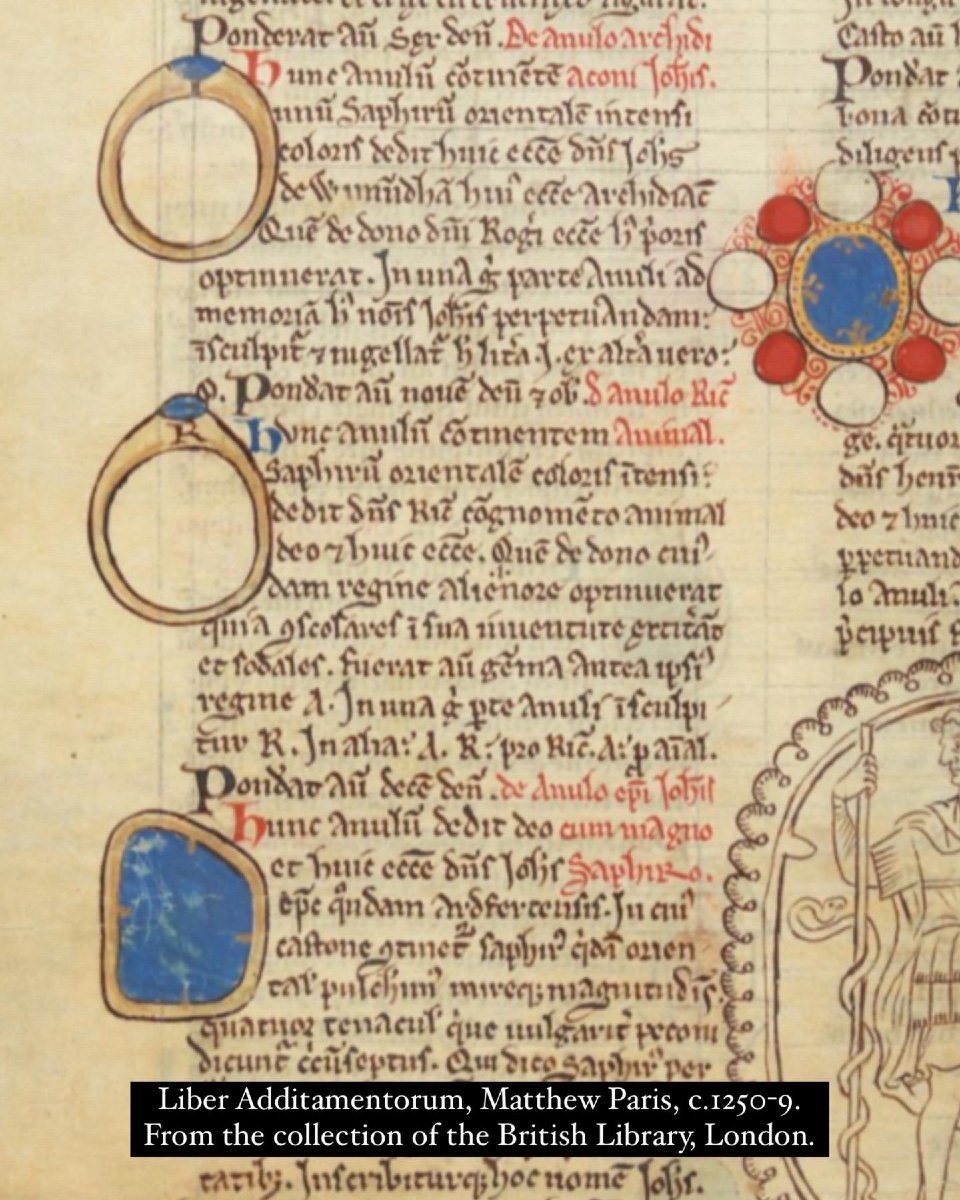 Ponderat aū Sex deñ. De anulo archidi
hunc anulū cōtinētē aconi Joh̄is.
unū Saphirū orientalē intensi
coloris dedit huic eccē dn̄s Joh̄s
de Wimūdhā hui' eccē archidiac̄
Quē de dono dn̄i Rog̓i eccē h' p̓oris
optinuerat. In una g̓ parte anuli ad
memoriā h' nois̄ Joh̄is perpetuandam:
īsculpit̄ ⁊ nigellat̄ h̄ lit̄a J. ex alt̓a uero:
O. Pond̓at aū nouē deñ ⁊ ob. d̄ anulo Ric̄
hunc anulū cōtinentem Animal.
Saphirū orientalē coloris ītensi:
dedit dn̄s Ric̄ cōgnomēto animal
deo ⁊ huic eccē. Quē de dono cui'
dam regine alienore optinuerat
quia ꝯscolares ī sua iuuentute
et sodales. fuerat aū gēma antea ipsi'
regine A. In una g̓ ꝑte anuli īsculpi
tur R. In alia: A. R: pro Ric̄. A: ꝑ aīal.
Pond̓at aū decē deñ. de Anulo epī Joh̄is
hunc anulū dedit deo cum magno
et huic eccē dn̄s Joh̄s Saphiro.
ep̄c q̓ndam Ardfertensis. In cui'
castone ꝯtinet̄ saphir' q̓dā orien
tal' pulch̄rim' mireq; magnitudīs.
quatuor tenacul' q̓ue uulgarit̓
dicunt̄
tatib;. Inscribiturq; hoc nomē Joh̄s.
Casto aū
Pond̓at
bona
diligens
ge. q̓tuor
dn̄s henr
deo ⁊ huic
ꝑpetuand
lo Anuli.
p̓cipuis
R
Liber Additamentorum, Matthew Paris, c.1250-9.
From the collection of the British Library, London.